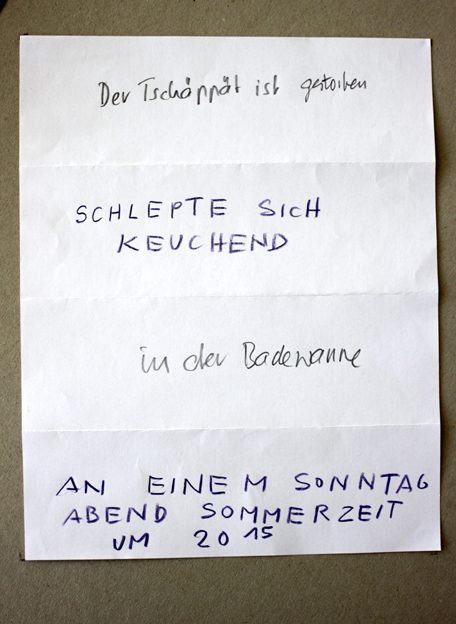 Der Tschäppät ist gestorben
SCHLEPTE SICH
KEUCHEND
in der Badewanne
AN EINEM SONNTAG
ABEND SOMMERZEIT
UM 20 15